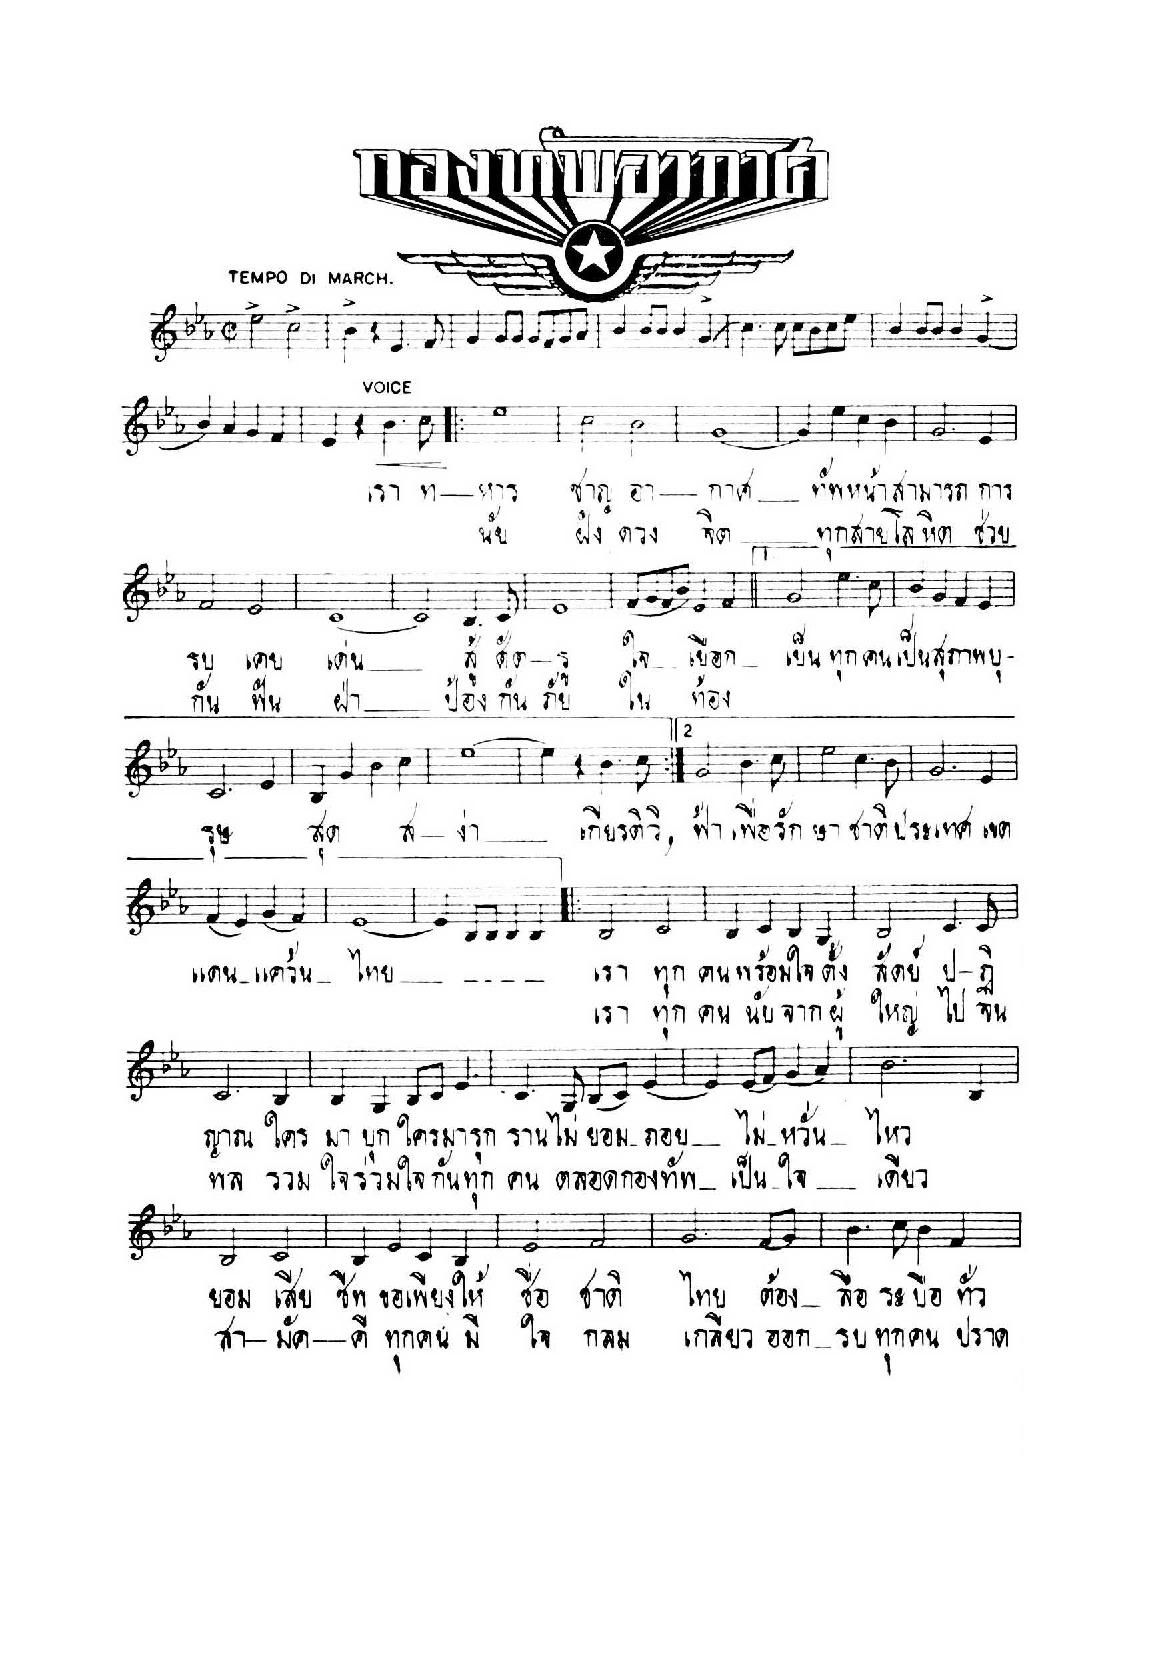 กองทัพอากาศ
TEMPO DI MARCH.
VOICE
เรา ท—หาร ชาญ อา—กาศ___ ทัพหน้าสามารถ การ
นัย ฝัง ดวง จิต___ทุกสายโลหิต ช่วย
1
รบ เคย เด่น___ สู้ ศัต—รู ใจ_เยือก_ เย็น ทุกคนเป็นสุภาพบุ-
กัน ฟัน ฝ่า___ป้องกัน ภัย ใน ท้อง
2
รุษ สุด ส—ง่า___ เกียรติวี, ฟ้า เพื่อรัก ษา ชาติประเทศ เขต
แดน_แคว้น_ ไทย___ _ _ _ _ เรา ทุก คนพร้อมใจตั้ง สัตย์ ป-ฏิ
เรา ทุก คน นับจากผู้ ใหญ่ ไป จน
ญาณ ใคร มา บุก ใครมารุก รานไม่ ยอม_ถอย_ ไม่_หวั่น_ ไหว
พล รวม ใจร่วมใจกันทุก คน ตลอดกองทัพ_ เป็น_ใจ__ เดียว
ยอม เสีย ชีพ ขอเพียงให้ ชื่อ ชาติ ไทย ต้อง_ลือ ระบือ ทั่ว
สา—มัค—คี ทุกคน มี ใจ กลม เกลียว ออก_รบ ทุกคน ปราศ